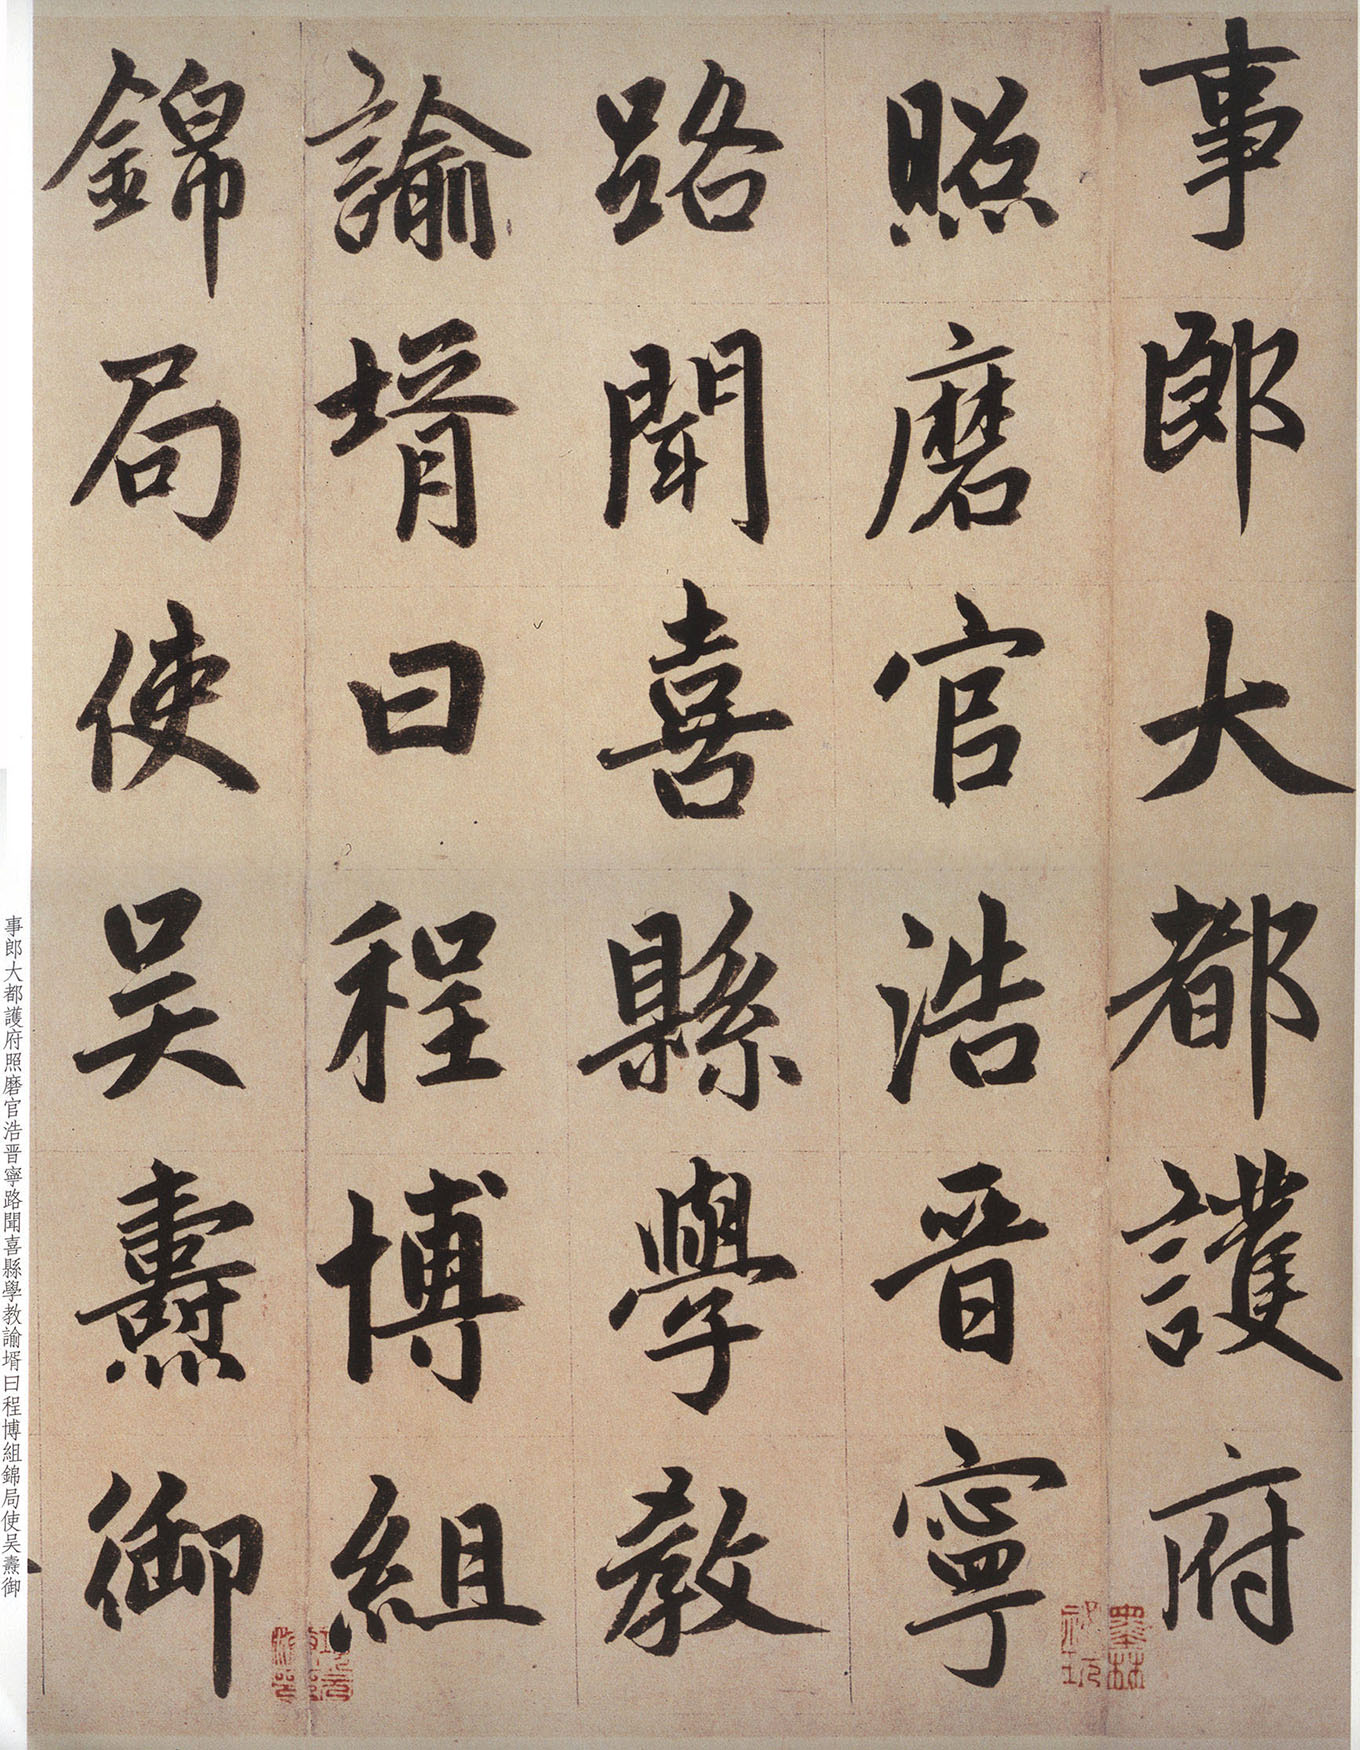 事郎大都護府
照磨官浩晋寧
路聞喜縣學教
諭壻曰程博組
錦局使吴燾御
事郎大都護府照磨官浩晋寧路聞喜縣學教諭壻曰程博組錦局使吴燾御